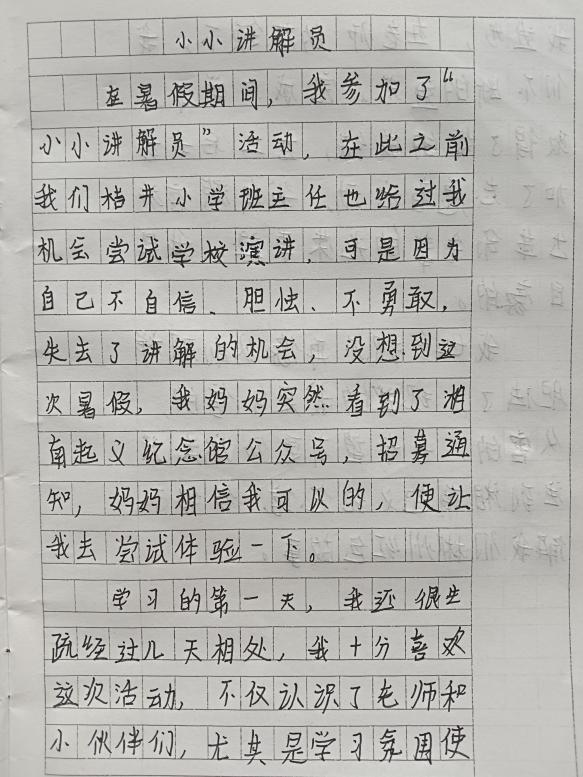 小小讲解员
在暑假期间，我参加了“
小小讲解员”活动，在此之前
我们梧井小学班主任也给过我
机会尝试学校演讲，可是因为
自己不自信、胆怯、不勇敢，
失去了讲解的机会，没想到这
次暑假，我妈妈突然看到了湘
南起义纪念馆公众号，招募通
知，妈妈相信我可以的，便让
我去尝试体验一下。
学习的第一天，我还很生
疏经过几天相处，我十分喜欢
这次活动，不仅认识了老师和
小伙伴们，尤其是学习氛围使